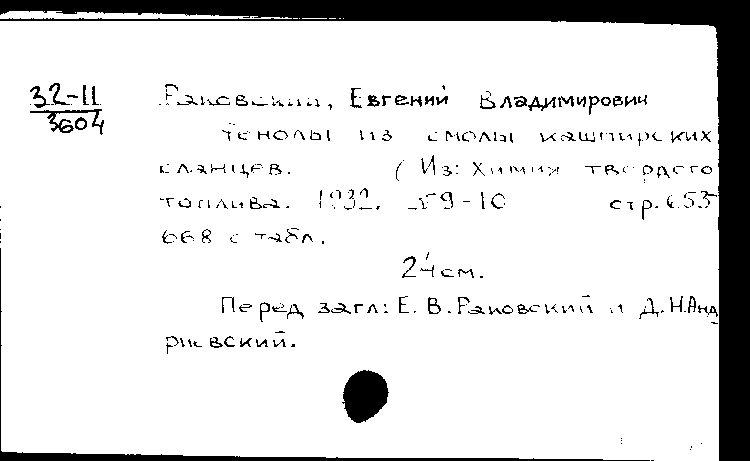 32-11
3604
Раковский, Евгений Владимирович
Фенолы из смолы кашпирских
сланцев. (Из: Химия твердого
топлива. 1932. №9-10 стр. 653
668 с табл.
24 см.
Перед загл: Е. В. Раковский и Д. Н. Анд
риевский.